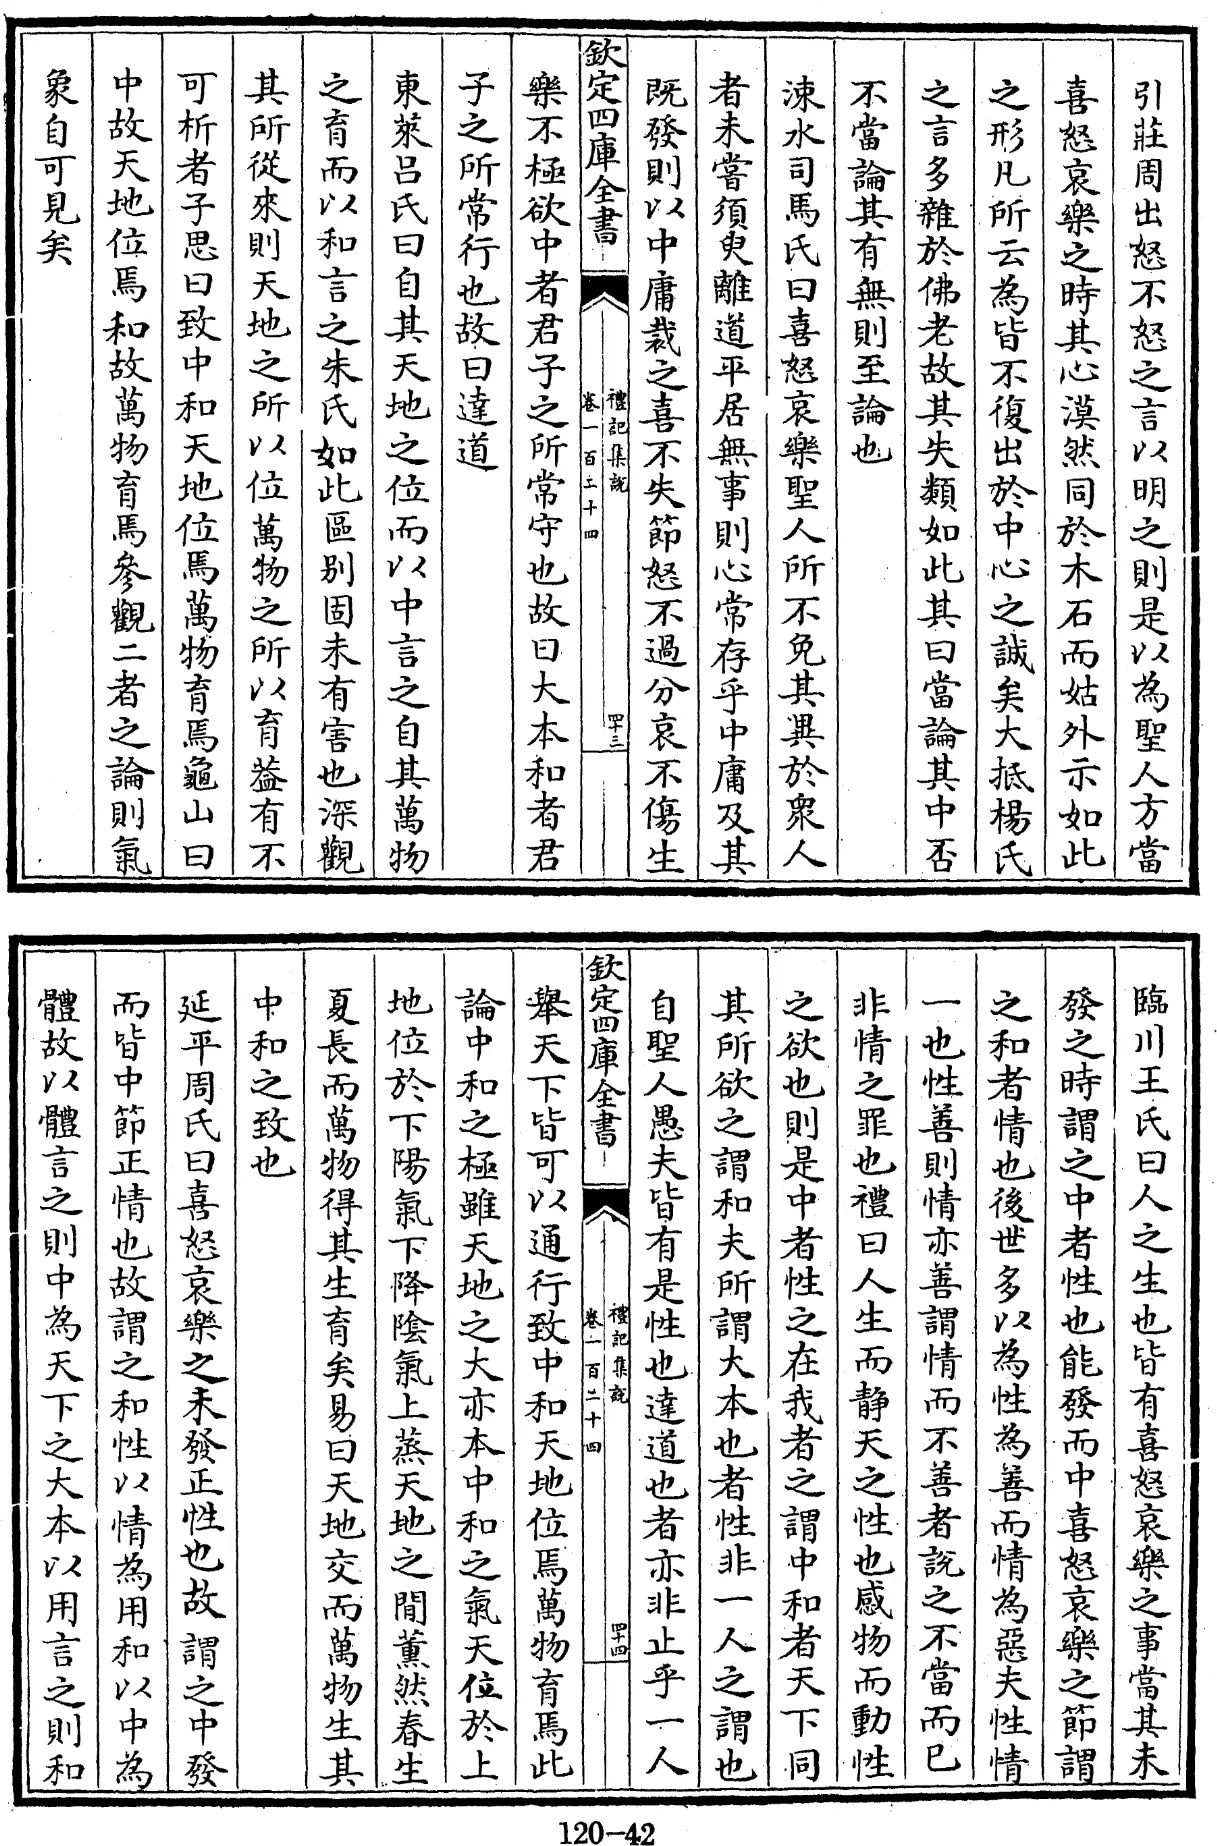 引莊周出怒不怒之言以明之則是以為聖人方當
喜怒哀樂之時其心漠然同於木石而姑外示如此
之形凡所云為皆不復出於中心之誠矣大抵楊氏
之言多雜於佛老故其失類如此其曰當論其中否
不當論其有無則至論也
涑水司馬氏曰喜怒哀樂聖人所不免其異於衆人
者未嘗須臾離道平居無事則心常存乎中庸及其
既發則以中庸裁之喜不失節怒不過分哀不傷生
欽定四庫全書
禮記集說
卷一百二十四
四十三
樂不極欲中者君子之所常守也故曰大本和者君
子之所常行也故曰達道
東萊呂氏曰自其天地之位而以中言之自其萬物
之育而以和言之朱氏如此區别固未有害也深觀
其所從來則天地之所以位萬物之所以育葢有不
可析者子思曰致中和天地位焉萬物育焉龜山曰
中故天地位焉和故萬物育焉參觀二者之論則氣
象自可見矣
臨川王氏曰人之生也皆有喜怒哀樂之事當其未
發之時謂之中者性也能發而中喜怒哀樂之節謂
之和者情也後世多以為性為善而情為惡夫性情
一也性善則情亦善謂情而不善者說之不當而已
非情之罪也禮曰人生而静天之性也感物而動性
之欲也則是中者性之在我者之謂中和者天下同
其所欲之謂和夫所謂大本也者性非一人之謂也
自聖人愚夫皆有是性也達道也者亦非止乎一人
欽定四庫全書
禮記集說
卷一百二十四
四十四
舉天下皆可以通行致中和天地位焉萬物育焉此
論中和之極雖天地之大亦本中和之氣天位於上
地位於下陽氣下降陰氣上蒸天地之間薰然春生
夏長而萬物得其生育矣易曰天地交而萬物生其
中和之致也
延平周氏曰喜怒哀樂之未發正性也故謂之中發
而皆中節正情也故謂之和性以情為用和以中為
體故以體言之則中為天下之大本以用言之則和
120-42